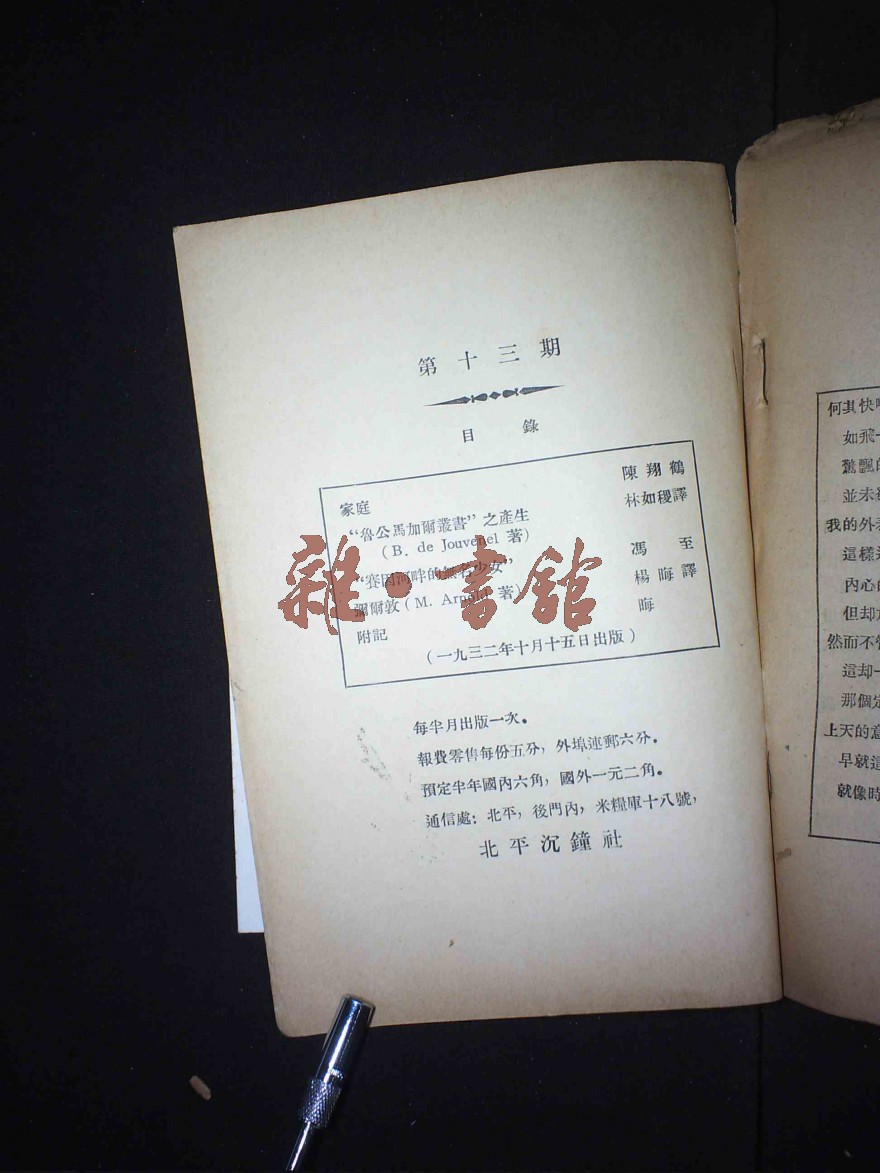 第十三期
目錄
家庭 陳翔鶴
“魯公馬加爾叢書”之產生 林如稷譯
(B. de Jouvenel 著)
“賽因河畔的無名少女” 馮至
彌爾敦(M. Arnold 著) 楊晦譯
附記 晦
(一九三二年十月十五日出版)
每半月出版一次。
報費零售每份五分,外埠連郵六分。
預定半年國內六角,國外一元二角。
通信處:北平,後門內,米糧庫十八號,
北平沉鐘社
雜·書館
何其快
如飛
驚飄的
並未
我的外表
這樣
內心的
但却
然而不管
這却一
那個定
上天的意
早就這
就像時